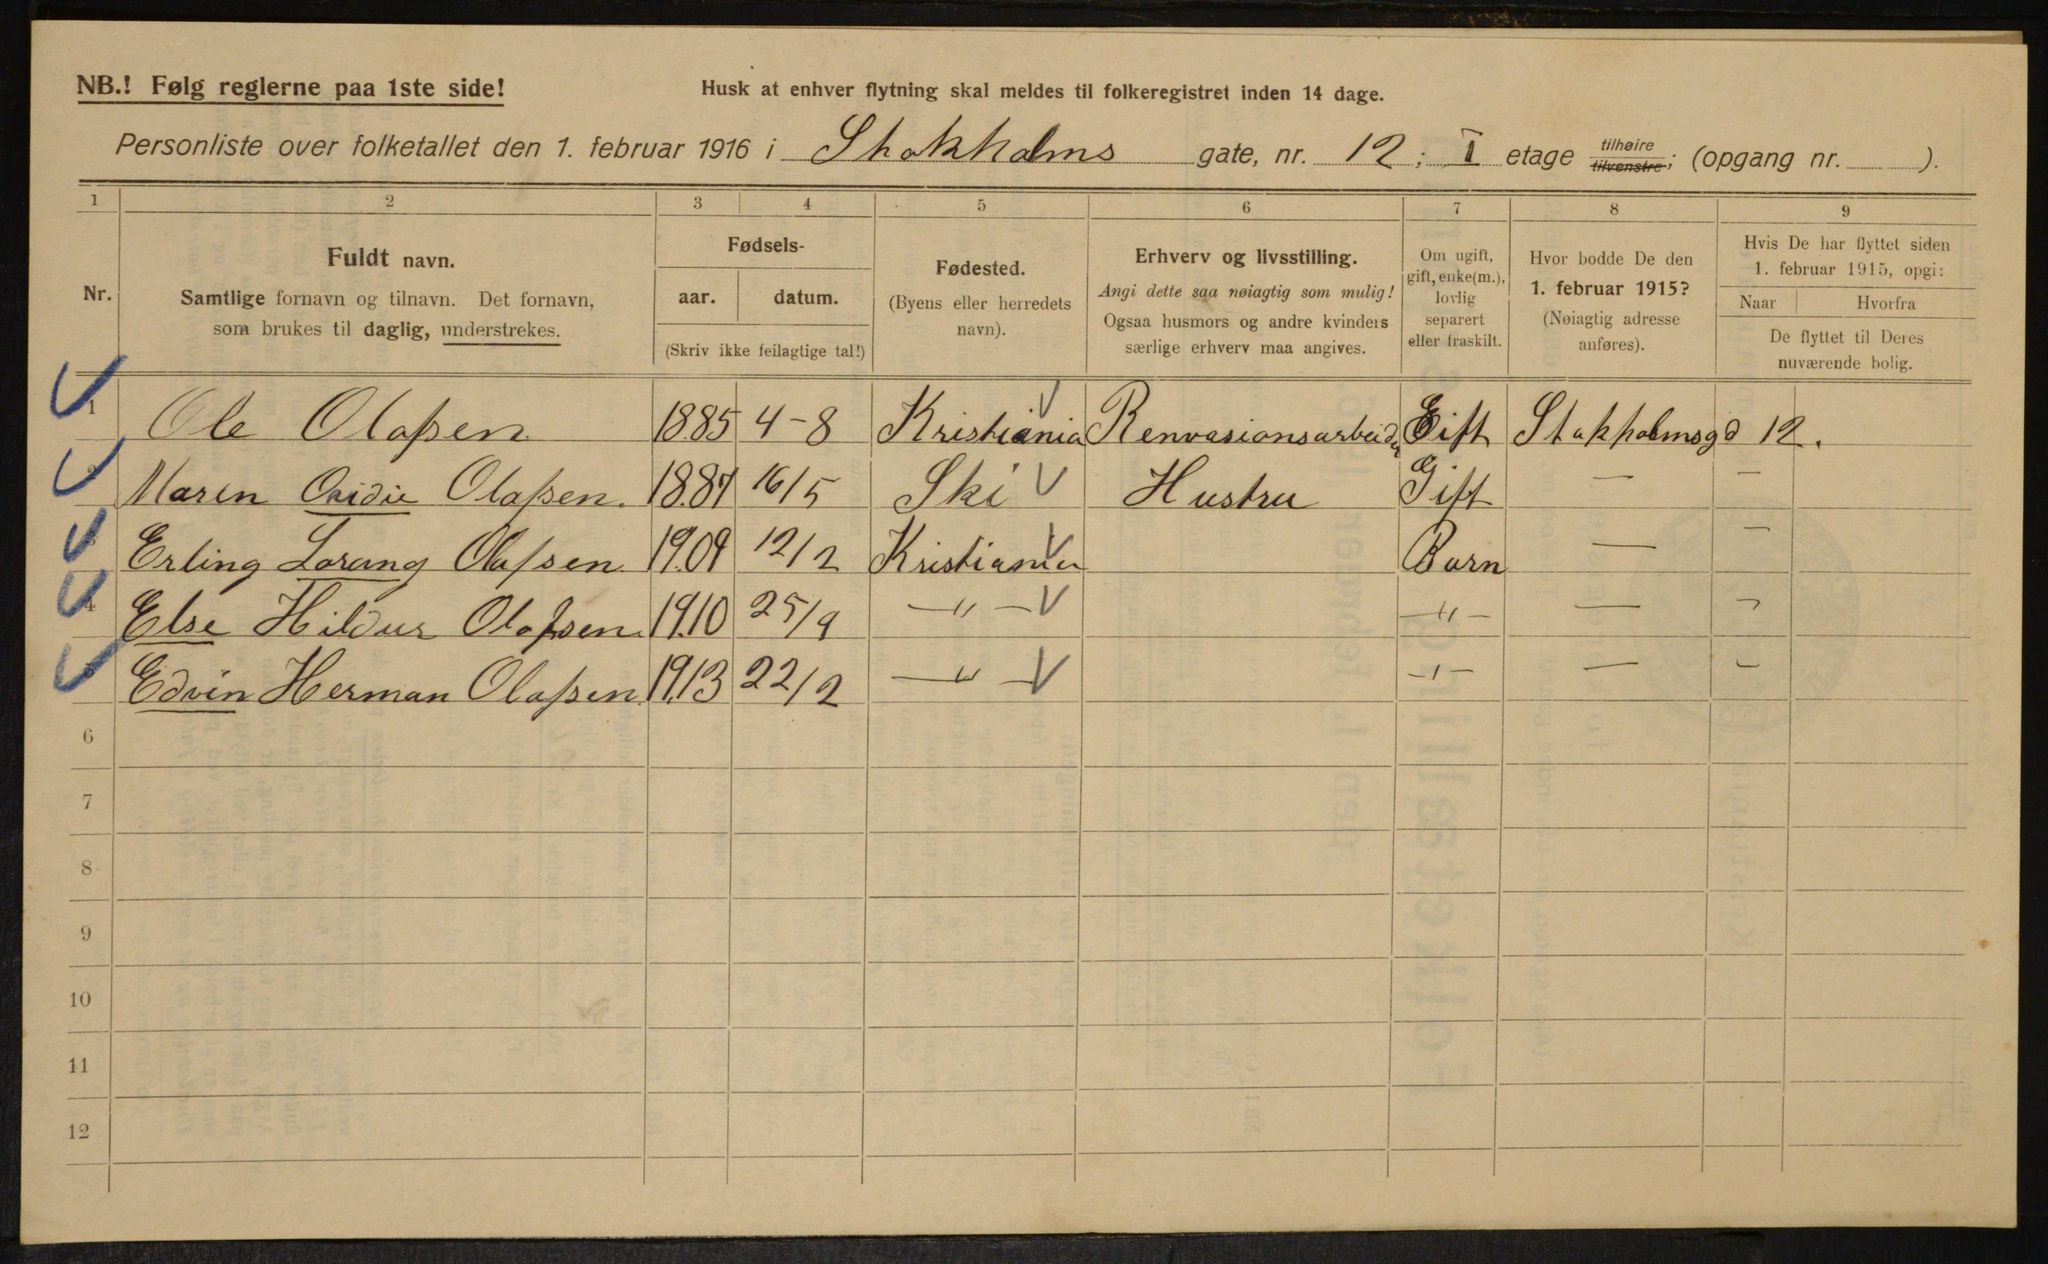 NB.! Følg reglerne paa 1ste side!
Husk at enhver flytning skal meldes til folkeregistret inden 14 dage.
Personliste over folketallet den 1. februar 1916 i Stokholms gate, nr. 12; I etage tilhøire tilvenstre; (opgang nr. ).
1 2 3 4 5 6 7 8 9
Nr.
Fuldt navn.
Samtlige fornavn og tilnavn. Det fornavn,
som brukes til daglig, understrekes.
Fødsels-
aar. datum.
(Skriv ikke feilagtige tal!)
Fødested.
(Byens eller herredets
navn).
Erhverv og livsstilling.
Angi dette saa nøiagtig som mulig!
Ogsaa husmors og andre kvinders
særlige erhverv maa angives.
Om ugift,
gift, enke(m.),
lovlig
separert
eller fraskilt.
Hvor bodde De den
1. februar 1915?
(Nøiagtig adresse
anføres).
Hvis De har flyttet siden
1. februar 1915, opgi:
Naar Hvorfra
De flyttet til Deres
nuværende bolig.
1 Ole Olafsen 1885 4-8 Kristiania Renvasionsarbeider Gift Stokholmsgd 12.
2 Maren Olafsen. 1887 16/5 Ski Hustru Gift — —
3 Erling Lorang Olafsen 1909 12/2 Kristiania Barn — —
4 Else Hildur Olafsen. 1910 25/9 —〃— —〃— — —
5 Edvin Herman Olafsen 1913 22/2 —〃— —〃— — —
6
7
8
9
10
11
12